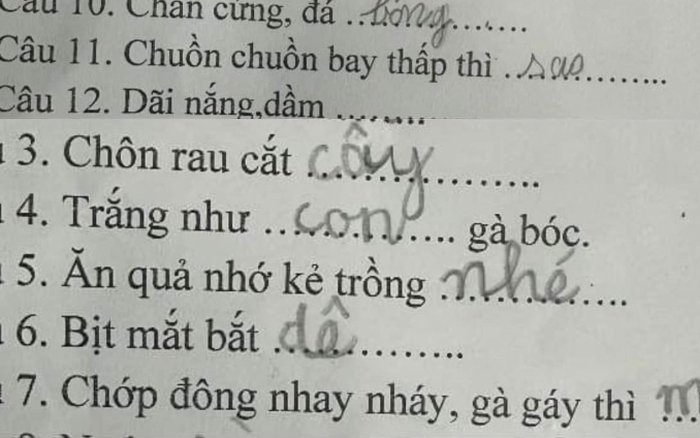 Câu 10. Chân cứng, đá ...bóng.......
Câu 11. Chuồn chuồn bay thấp thì ..sao.........
Câu 12. Dãi nắng,dầm ........
3. Chôn rau cắt ..cây...........
4. Trắng như ...con....... gà bóc.
5. Ăn quả nhớ kẻ trồng ..nhé.......
6. Bịt mắt bắt ..dê...........
7. Chớp đông nhay nháy, gà gáy thì